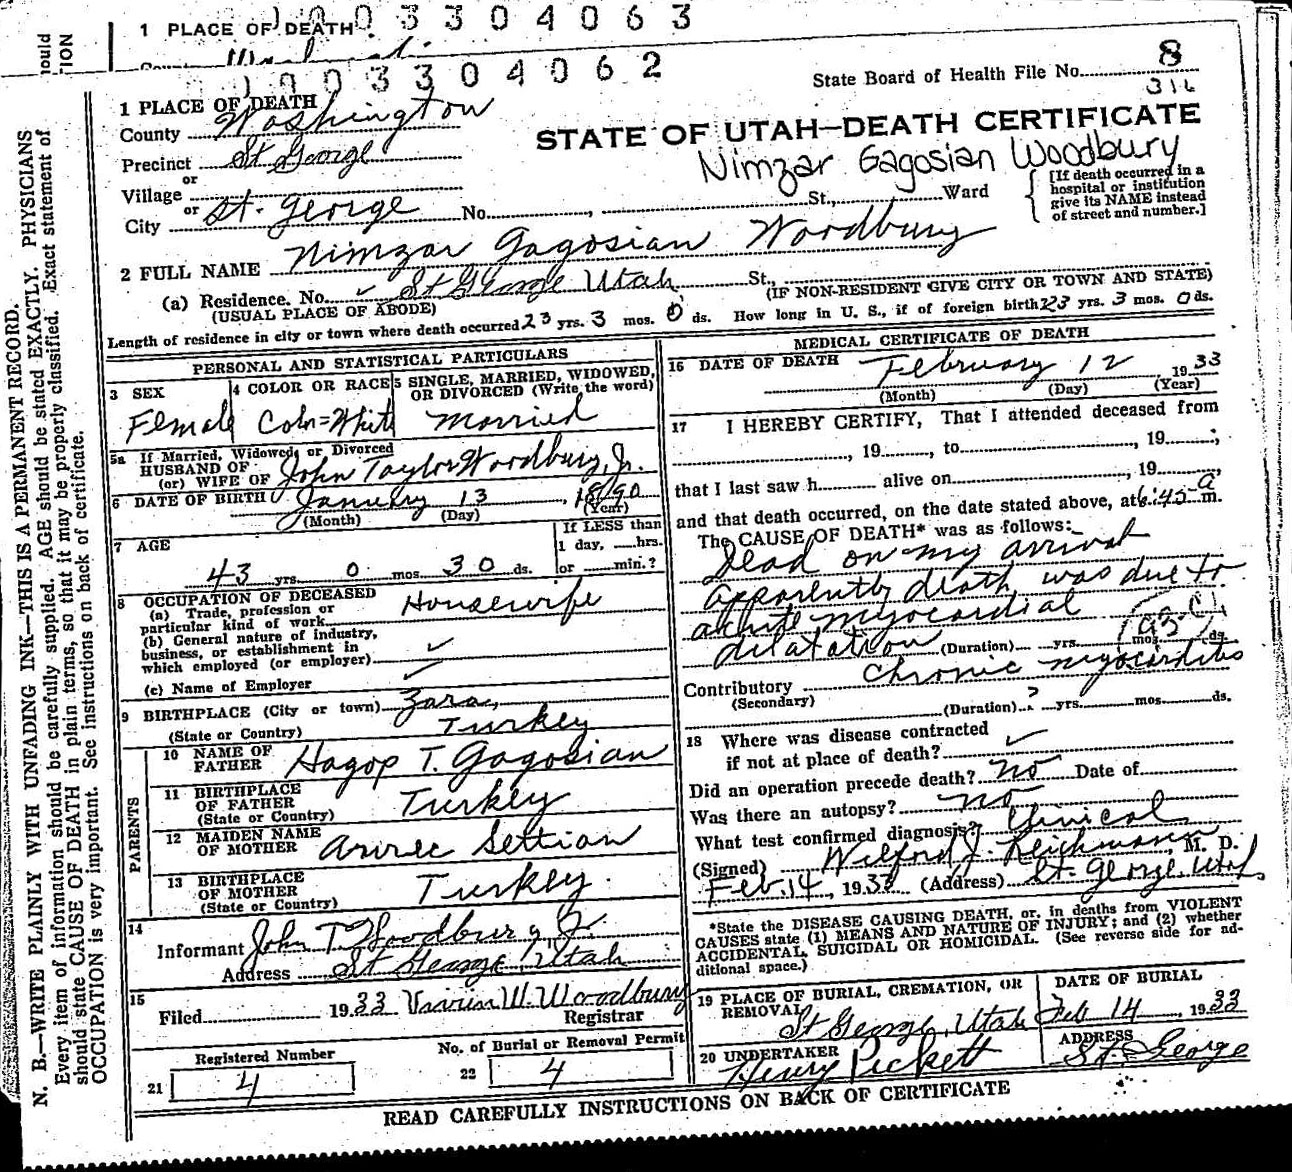 1003304063
1 PLACE OF DEATH
ould
TION
1003304062
State Board of Health File No. 8
316
1 PLACE OF DEATH
County Washington
STATE OF UTAH—DEATH CERTIFICATE
Nimzar Gagosian Woodbury
Precinct St George
or
Village
or
City St. George No. , St., Ward
[If death occurred in a
hospital or institution
give its NAME instead
of street and number.]
2 FULL NAME Nimzar Gagosian Woodbury
(a) Residence. No. ✓ St George Utah St.,
(USUAL PLACE OF ABODE)
(IF NON-RESIDENT GIVE CITY OR TOWN AND STATE)
Length of residence in city or town where death occurred 23 yrs. 3 mos. 0 ds. How long in U. S., if of foreign birth 23 yrs. 3 mos. 0 ds.
PERSONAL AND STATISTICAL PARTICULARS
3 SEX
Female
4 COLOR OR RACE
Color=White
5 SINGLE, MARRIED, WIDOWED,
OR DIVORCED (Write the word)
Married
5a If Married, Widowed, or Divorced
HUSBAND OF
(or) WIFE OF John Taylor Woodbury, Jr.
6 DATE OF BIRTH January 13, 1890
(Month) (Day) (Year)
7 AGE
43 yrs. 0 mos. 30 ds.
If LESS than
1 day, hrs.
or min.?
8 OCCUPATION OF DECEASED
(a) Trade, profession or
particular kind of work Housewife
(b) General nature of industry,
business, or establishment in
which employed (or employer) ✓
(c) Name of Employer ✓
9 BIRTHPLACE (City or town) Zara,
(State or Country) Turkey
PARENTS
10 NAME OF
FATHER Hagop T. Gagosian
11 BIRTHPLACE
OF FATHER Turkey
(State or Country)
12 MAIDEN NAME
OF MOTHER Settian
13 BIRTHPLACE
OF MOTHER Turkey.
(State or Country)
14
Informant John T. Woodbury Jr.
Address St George, Utah
15
Filed 1933 Vivien W. Woodbury
Registrar
Registered Number
21 4
No. of Burial or Removal Permit
22 4
MEDICAL CERTIFICATE OF DEATH
16 DATE OF DEATH February 12, 1933
(Month) (Day) (Year)
17 I HEREBY CERTIFY, That I attended deceased from
, 19 , to , 19 ;
that I last saw h alive on , 19 ,
and that death occurred, on the date stated above, at 6:45 a m.
The CAUSE OF DEATH* was as follows:
Dead on my arrival
apparently death was due to
acute myocardial
dilatation (Duration) yrs. mos. ds.
Contributory Chronic myocarditis
(Secondary)
(Duration) ? yrs. mos. ds.
18 Where was disease contracted
if not at place of death? ✓
Did an operation precede death? no Date of
Was there an autopsy? no
What test confirmed diagnosis? Clinical
(Signed) Wilford J. Reichmann, M. D.
Feb. 14, 1933 (Address) St. George, Utah
*State the DISEASE CAUSING DEATH, or, in deaths from VIOLENT
CAUSES state (1) MEANS AND NATURE OF INJURY; and (2) whether
ACCIDENTAL, SUICIDAL OR HOMICIDAL. (See reverse side for ad-
ditional space.)
19 PLACE OF BURIAL, CREMATION, OR
REMOVAL
St George, Utah
DATE OF BURIAL
Feb 14, 1933
20 UNDERTAKER
Henry Pickett
ADDRESS
St. George
READ CAREFULLY INSTRUCTIONS ON BACK OF CERTIFICATE
N. B.—WRITE PLAINLY WITH UNFADING INK—THIS IS A PERMANENT RECORD.
Every item of information should be carefully supplied. AGE should be stated EXACTLY. PHYSICIANS
should state CAUSE OF DEATH in plain terms, so that it may be properly classified. Exact statement of
OCCUPATION is very important. See instructions on back of certificate.